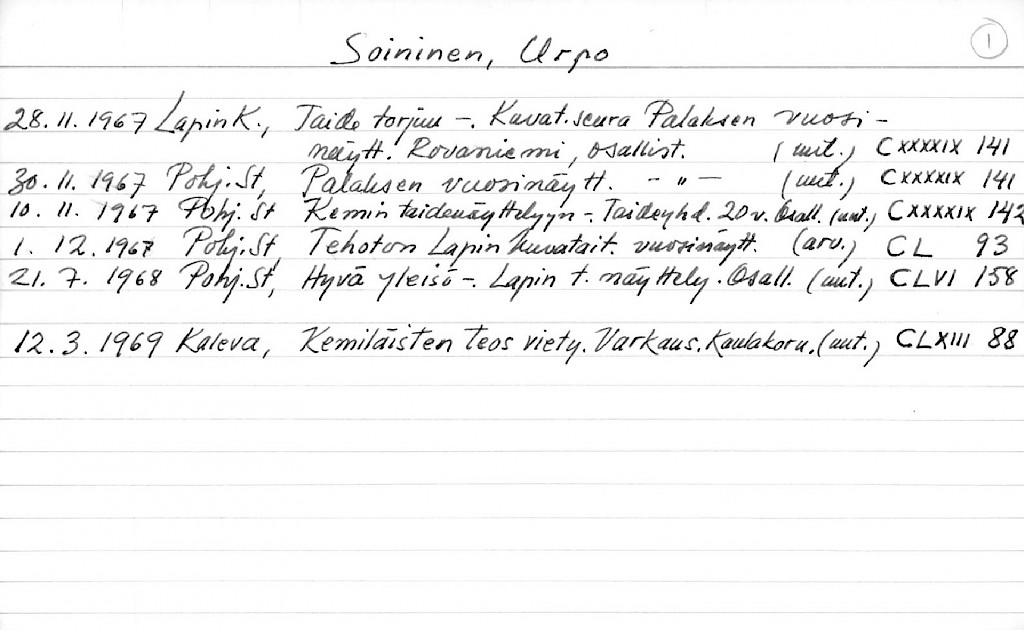 Soininen, Urpo 1
28.11.1967 Lapin K., Taide torjuu -. Kuvat.seura Palaksen vuosi-
näytt. Rovaniemi, osallist. (uut.) CXXXXIX 141
30.11.1967 Pohj.St, Palaksen vuosinäytt. - " - (uut.) CXXXXIX 141
10.11.1967 Pohj.St Kemin taidenäyttelyyn -. Taideyhd. 20 v. Osall. (uut.) CXXXXIX 142
1. 12.1967 Pohj.St, Tehoton Lapin kuvatait. vuosinäytt. (arv.) CL 93
21. 7. 1968 Pohj.St, Hyvä yleisö -. Lapin t. näyttely. Osall. (uut.) CLVI 158
12.3.1969 Kaleva, Kemiläisten teos viety. Varkaus. Kaulakoru. (uut.) CLXIII 88